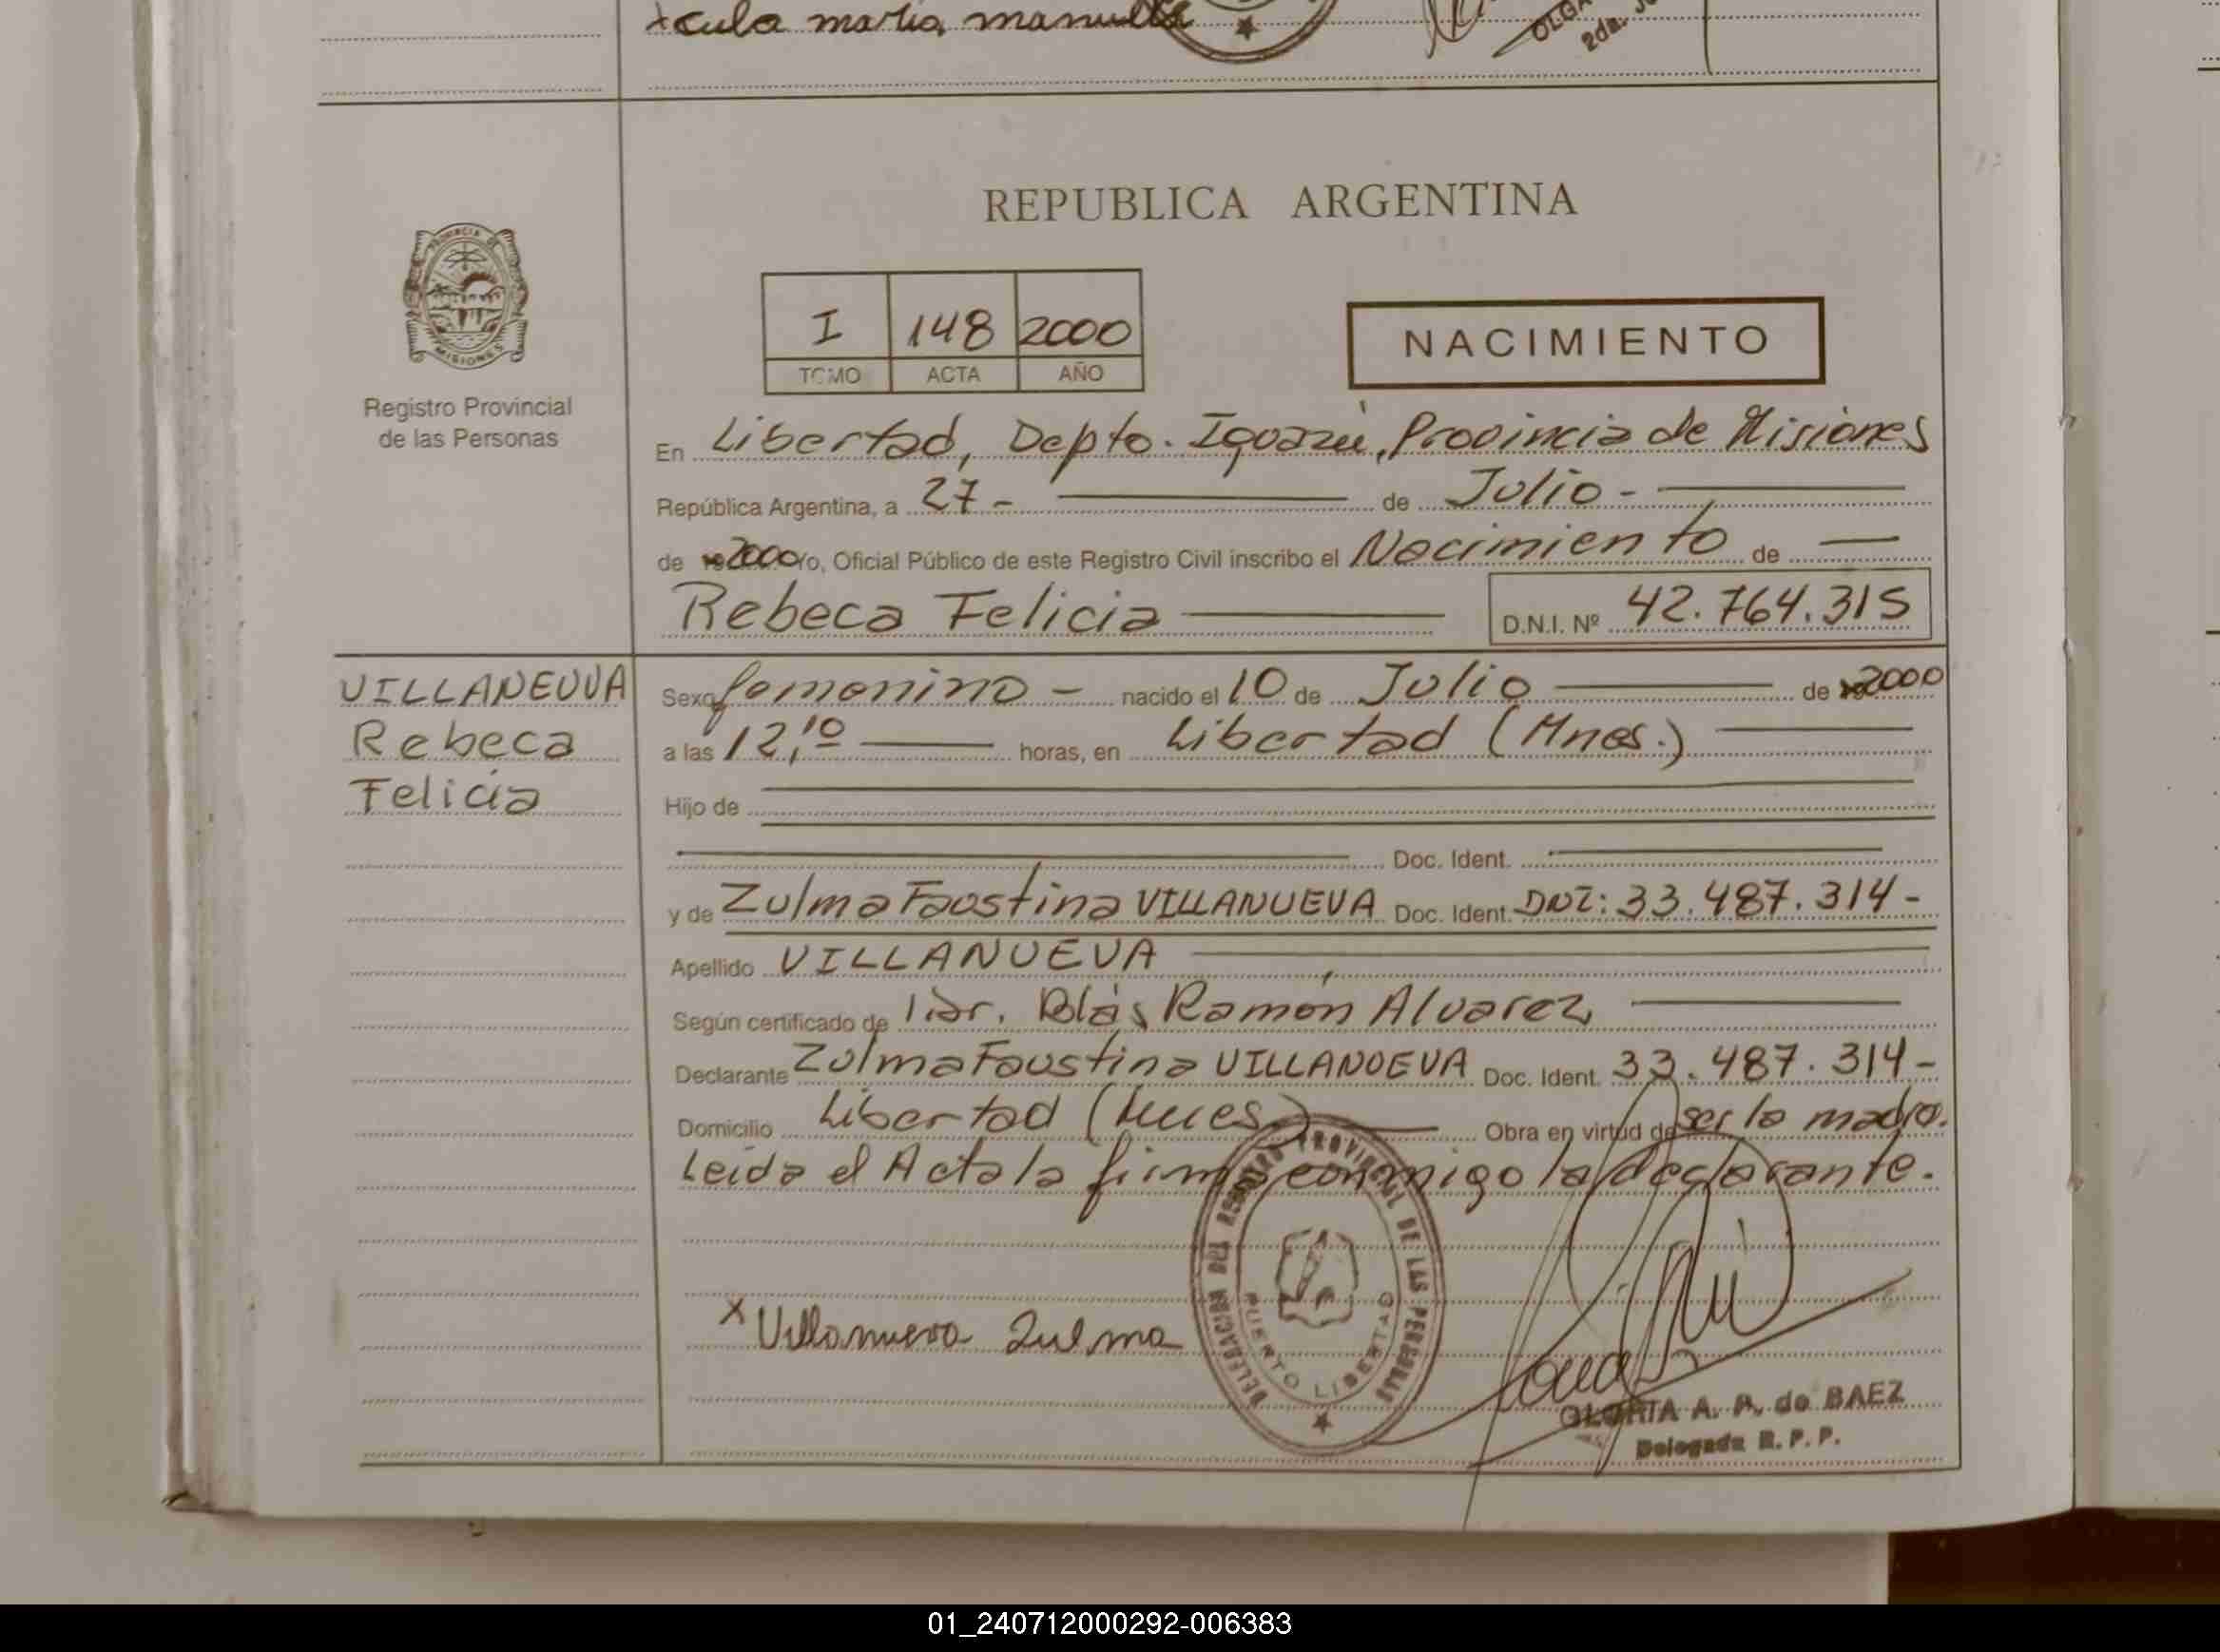 xcula maria manuela
OLGA
2da. J
REPUBLICA ARGENTINA
PROVINCIA DE
MISIONES
Registro Provincial
de las Personas
I 148 2000
TOMO ACTA AÑO
NACIMIENTO
En Libertad, Depto. Iguazú, Provincia de Misiones
República Argentina, a 27- de Julio-
de 2000 Yo, Oficial Público de este Registro Civil inscribo el Nacimiento de
Rebeca Felicia D.N.I. Nº 42.764.315
VILLANEUVA
Rebeca
Felicia
Sexo femenino - nacido el 10 de Julio de 2000
a las 12,10 horas, en Libertad (Mnes.)
Hijo de
Doc. Ident.
y de Zulma Faustina VILLANUEVA Doc. Ident. DNI: 33.487.314-
Apellido VILLANUEVA
Según certificado de Blás Ramón Alvarez
Declarante Zulma Faustina VILLANUEVA Doc. Ident. 33.487.314-
Domicilio Libertad Obra en virtud de ser la madre.
Leida el Acta la firma conmigo la declarante.
DELEGACION DEL REGISTRO PROVINCIAL DE LAS PERSONAS
PUERTO LIBERTAD
x Villanueva Zulma
GLORIA A. A. de BAEZ
Delegada R. P. P.
01_240712000292-006383